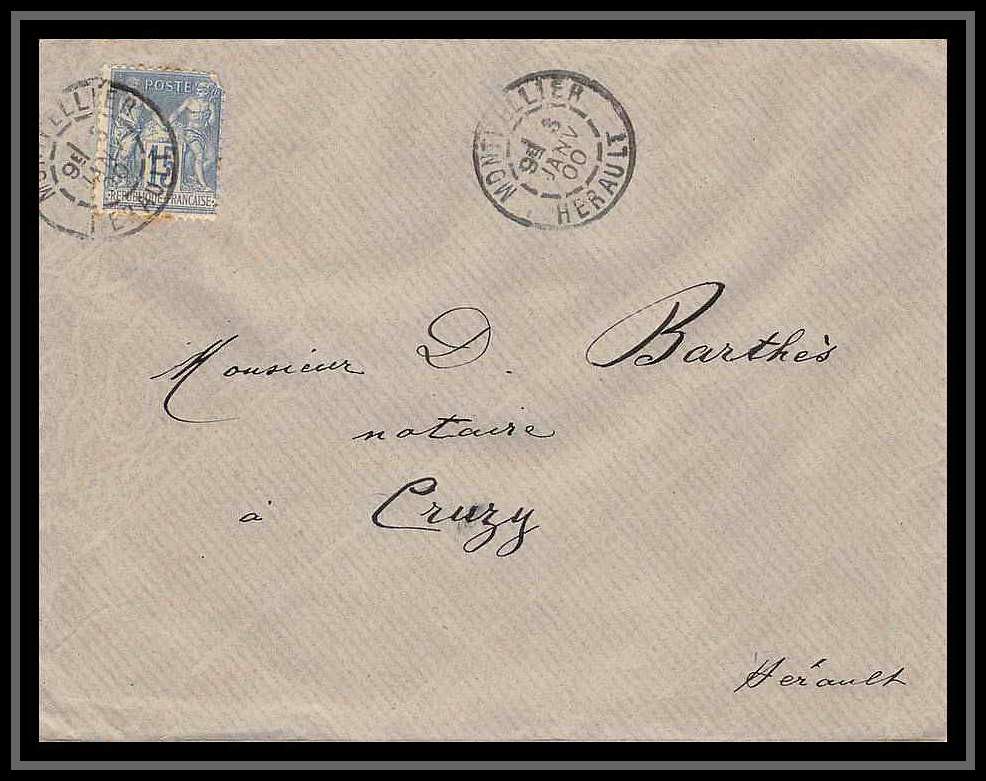 POSTE
15
REPUBLIQUE FRANCAISE
MONTPELLIER
3
JANV
00
HERAULT
Monsieur D. Barthès
notaire
à Cruzy
Hérault